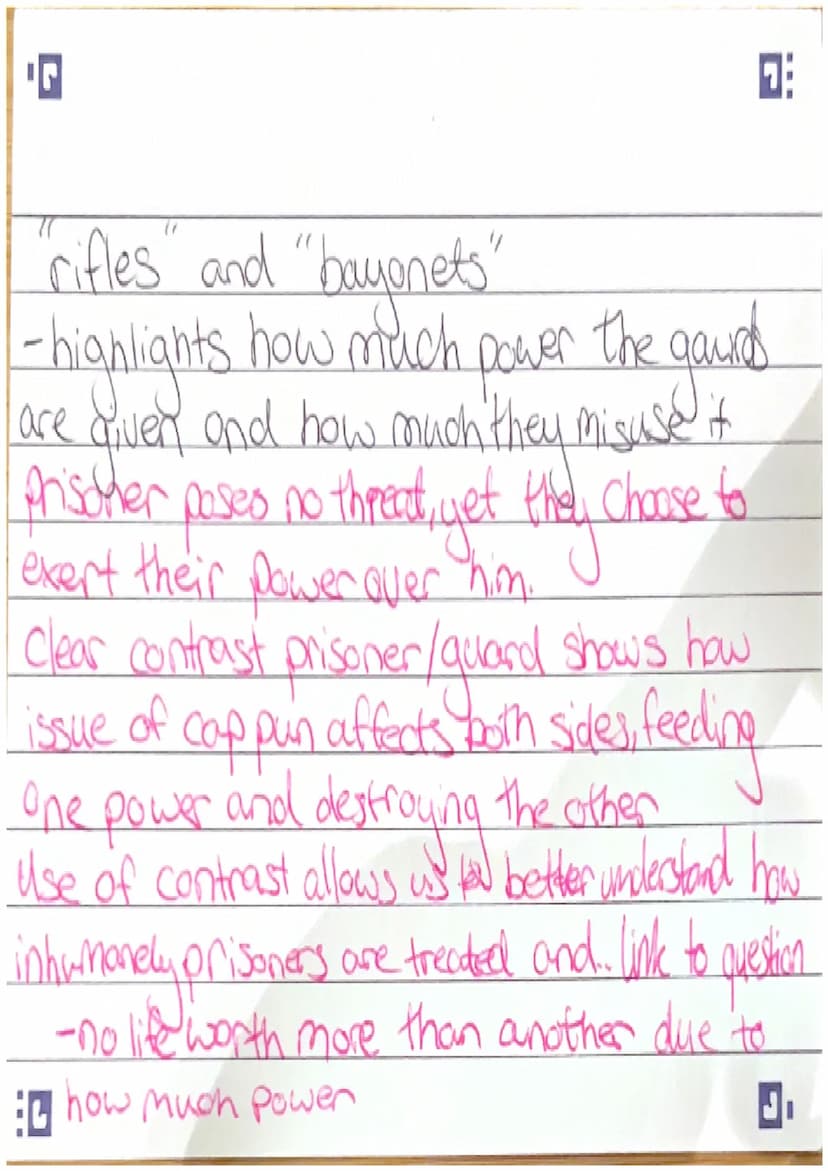 "rifles" and "bayonets"
-highlights how much power the gaurds
are given and how much they misuse it
prisoner poses no threat, yet they choose to
exert their power over him.
Clear contrast prisoner/guard shows how
issue of cap pun affects both sides, feeding
one power and destroying the other
Use of contrast allows us to better understand how
inhumanely prisoners are treated and.. link to question
-no life worth more than another due to
how much power